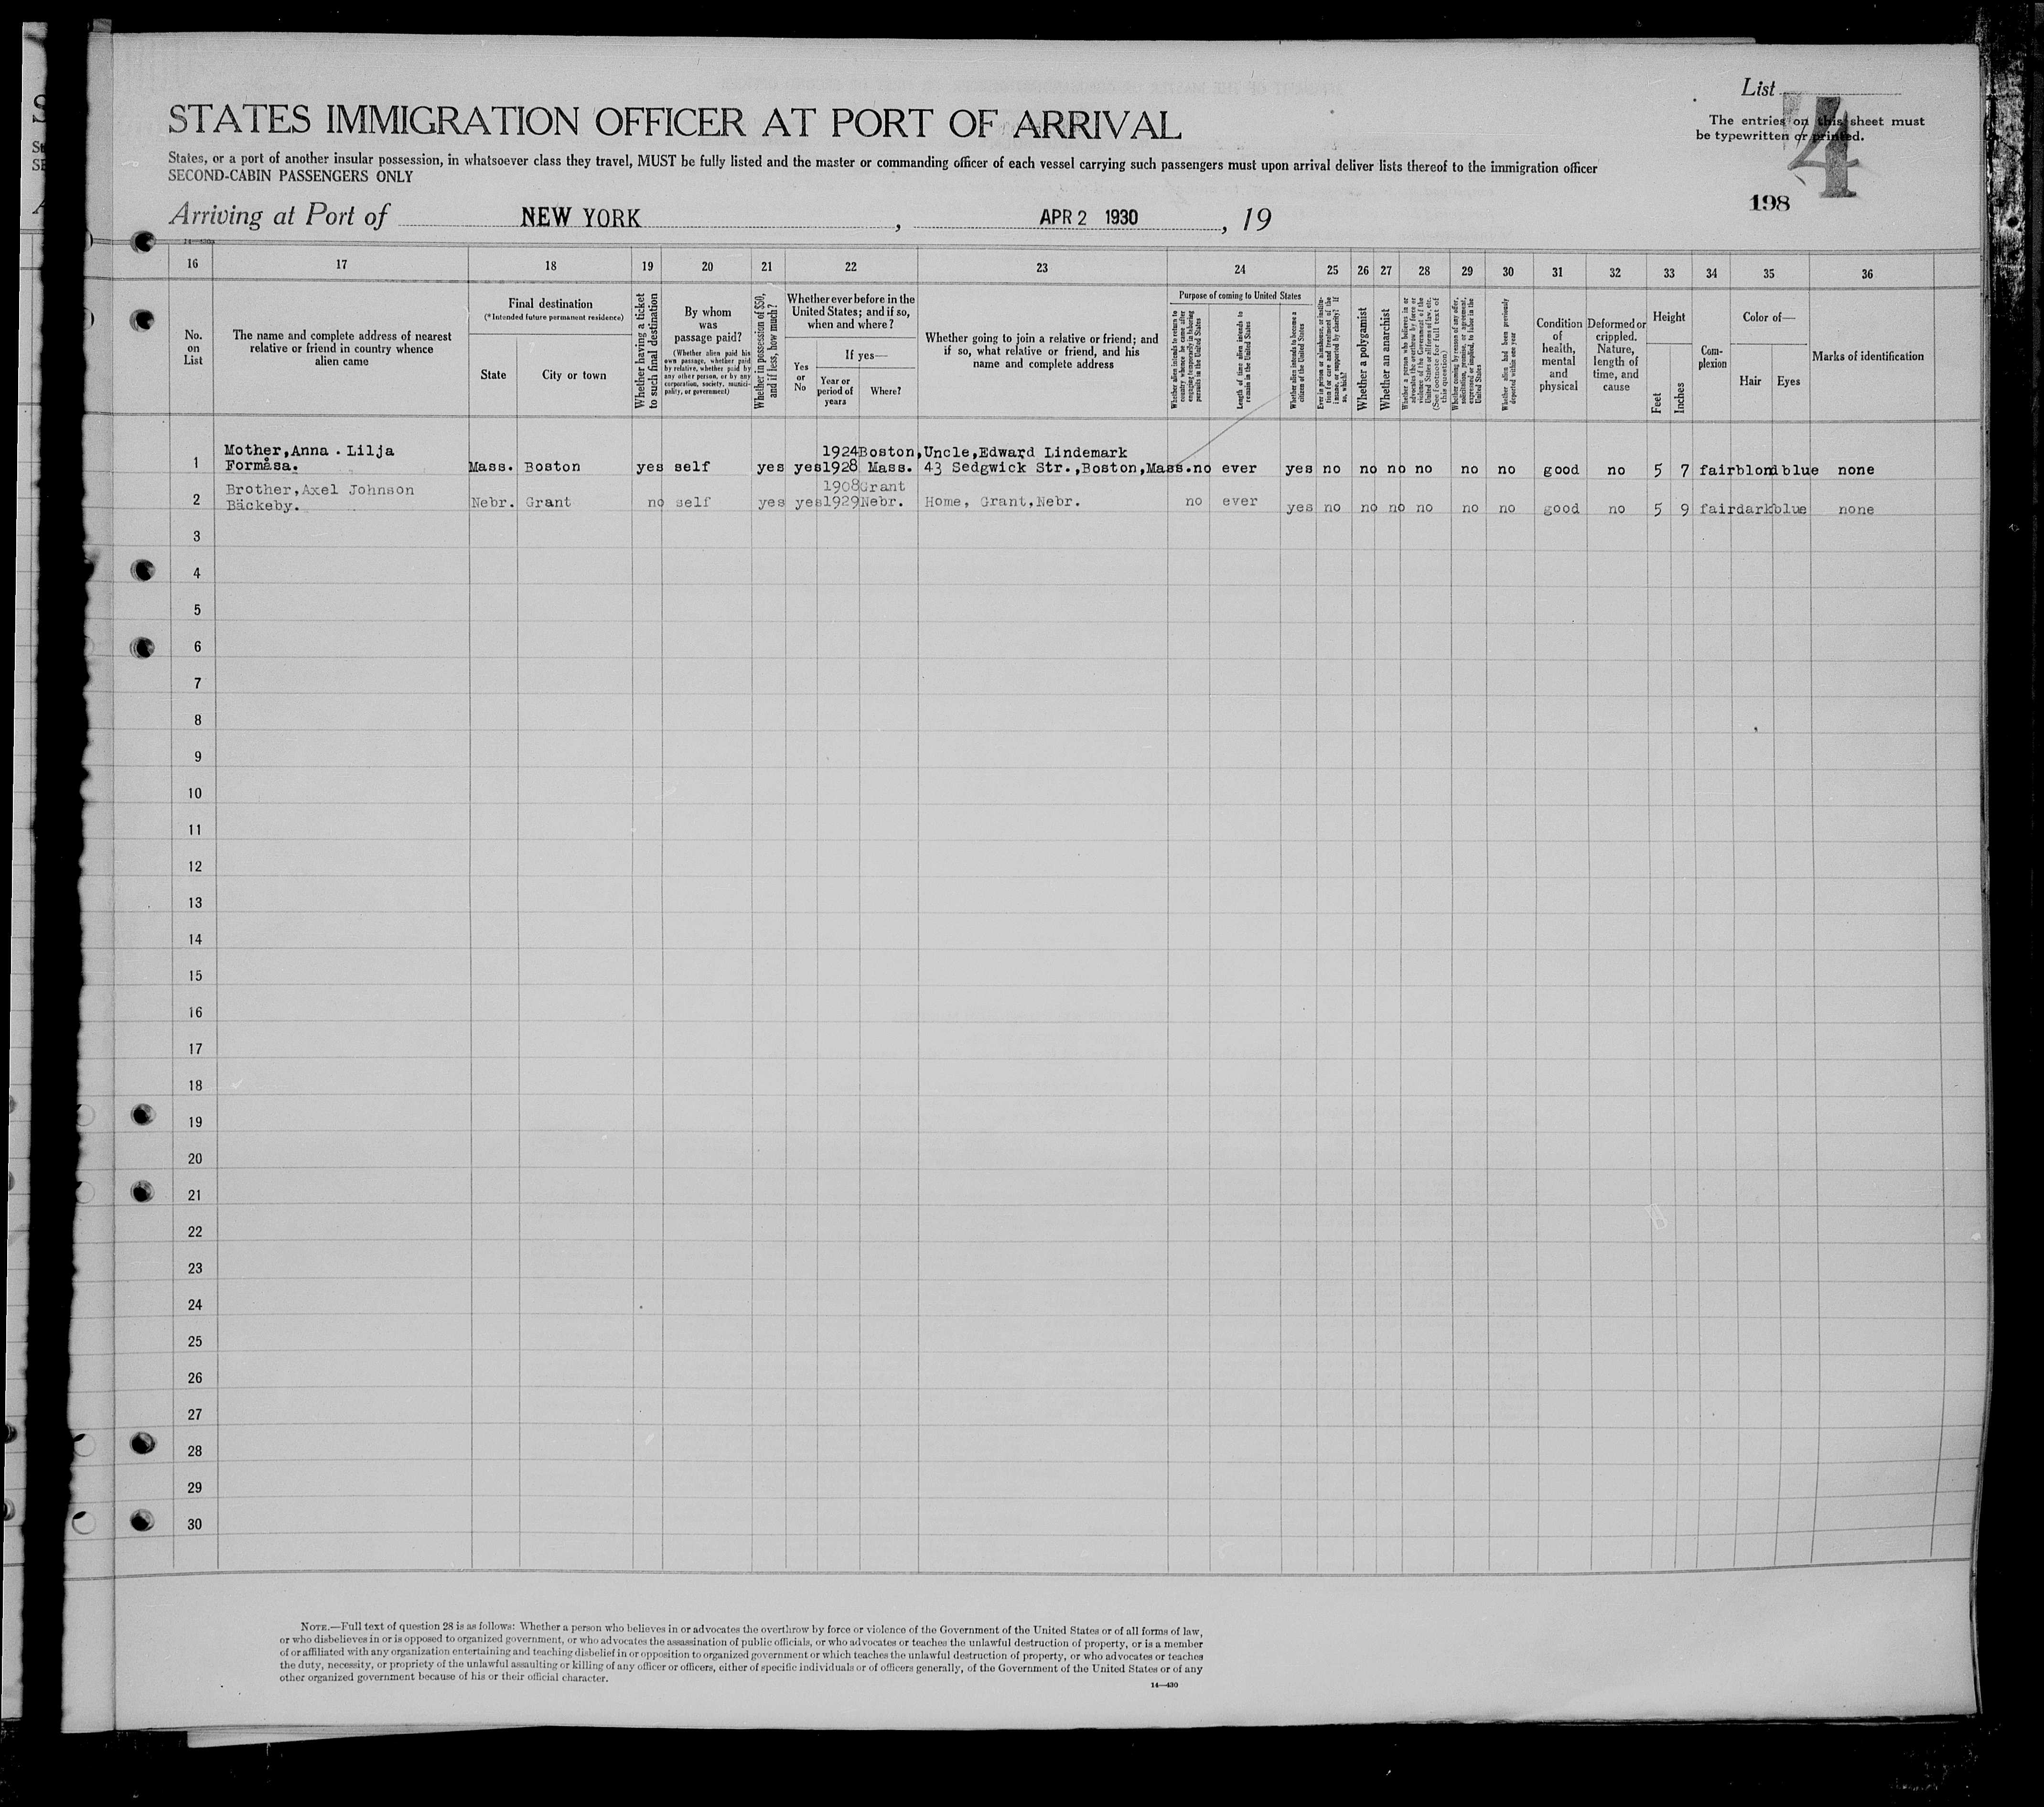 List
STATES IMMIGRATION OFFICER AT PORT OF ARRIVAL
The entries on this sheet must
be typewritten or printed.
4
States, or a port of another insular possession, in whatsoever class they travel, MUST be fully listed and the master or commanding officer of each vessel carrying such passengers must upon arrival deliver lists thereof to the immigration officer
SECOND-CABIN PASSENGERS ONLY
198
Arriving at Port of NEW YORK , APR 2 1930 , 19
14—430a
16 17 18 19 20 21 22 23 24 25 26 27 28 29 30 31 32 33 34 35 36
No.
on
List
The name and complete address of nearest
relative or friend in country whence
alien came
Final destination
(*Intended future permanent residence)
State
City or town
Whether having a ticket
to such final destination
By whom
was
passage paid?
(Whether alien paid his
own passage, whether paid
by relative, whether paid by
any other person, or by any
corporation, society, munici-
pality, or government)
Whether in possession of $50,
and if less, how much?
Whether ever before in the
United States; and if so,
when and where?
Yes
or
No
If yes—
Year or
period of
years
Where?
Whether going to join a relative or friend; and
if so, what relative or friend, and his
name and complete address
Purpose of coming to United States
Whether alien intends to return to
country whence he came after
engaging temporarily in laboring
pursuits in the United States
Length of time alien intends to
remain in the United States
Whether alien intends to become a
citizen of the United States
Ever in prison or almshouse, or institu-
tion for care and treatment of the
insane, or supported by charity? If
so, which?
Whether a polygamist
Whether an anarchist
Whether a person who believes in or
advocates the overthrow by force or
violence of the Government of the
United States or all forms of law, etc.
(See footnote for full text of
this question)
Whether coming by reason of any offer,
solicitation, promise, or agreement,
expressed or implied, to labor in the
United States
Whether alien had been previously
deported within one year
Condition
of
health,
mental
and
physical
Deformed or
crippled.
Nature,
length of
time, and
cause
Height
Feet
Inches
Com-
plexion
Color of—
Hair Eyes
Marks of identification
1 Mother,Anna . Lilja 1924 Boston, Uncle,Edward Lindemark
Formåsa. Mass. Boston yes self yes yes 1928 Mass. 43 Sedgwick Str.,Boston,Mass. no ever yes no no no no no no good no 5 7 fair blond blue none
2 Brother,Axel Johnson 1908 Grant
Bäckeby. Nebr. Grant no self yes yes 1929 Nebr. Home, Grant,Nebr. no ever yes no no no no no no good no 5 9 fair dark blue none
3
4
5
6
7
8
9
10
11
12
13
14
15
16
17
18
19
20
21
22
23
24
25
26
27
28
29
30
NOTE.—Full text of question 28 is as follows: Whether a person who believes in or advocates the overthrow by force or violence of the Government of the United States or of all forms of law,
or who disbelieves in or is opposed to organized government, or who advocates the assassination of public officials, or who advocates or teaches the unlawful destruction of property, or is a member
of or affiliated with any organization entertaining and teaching disbelief in or opposition to organized government or which teaches the unlawful destruction of property, or who advocates or teaches
the duty, necessity, or propriety of the unlawful assaulting or killing of any officer or officers, either of specific individuals or of officers generally, of the Government of the United States or of any
other organized government because of his or their official character.
14—430